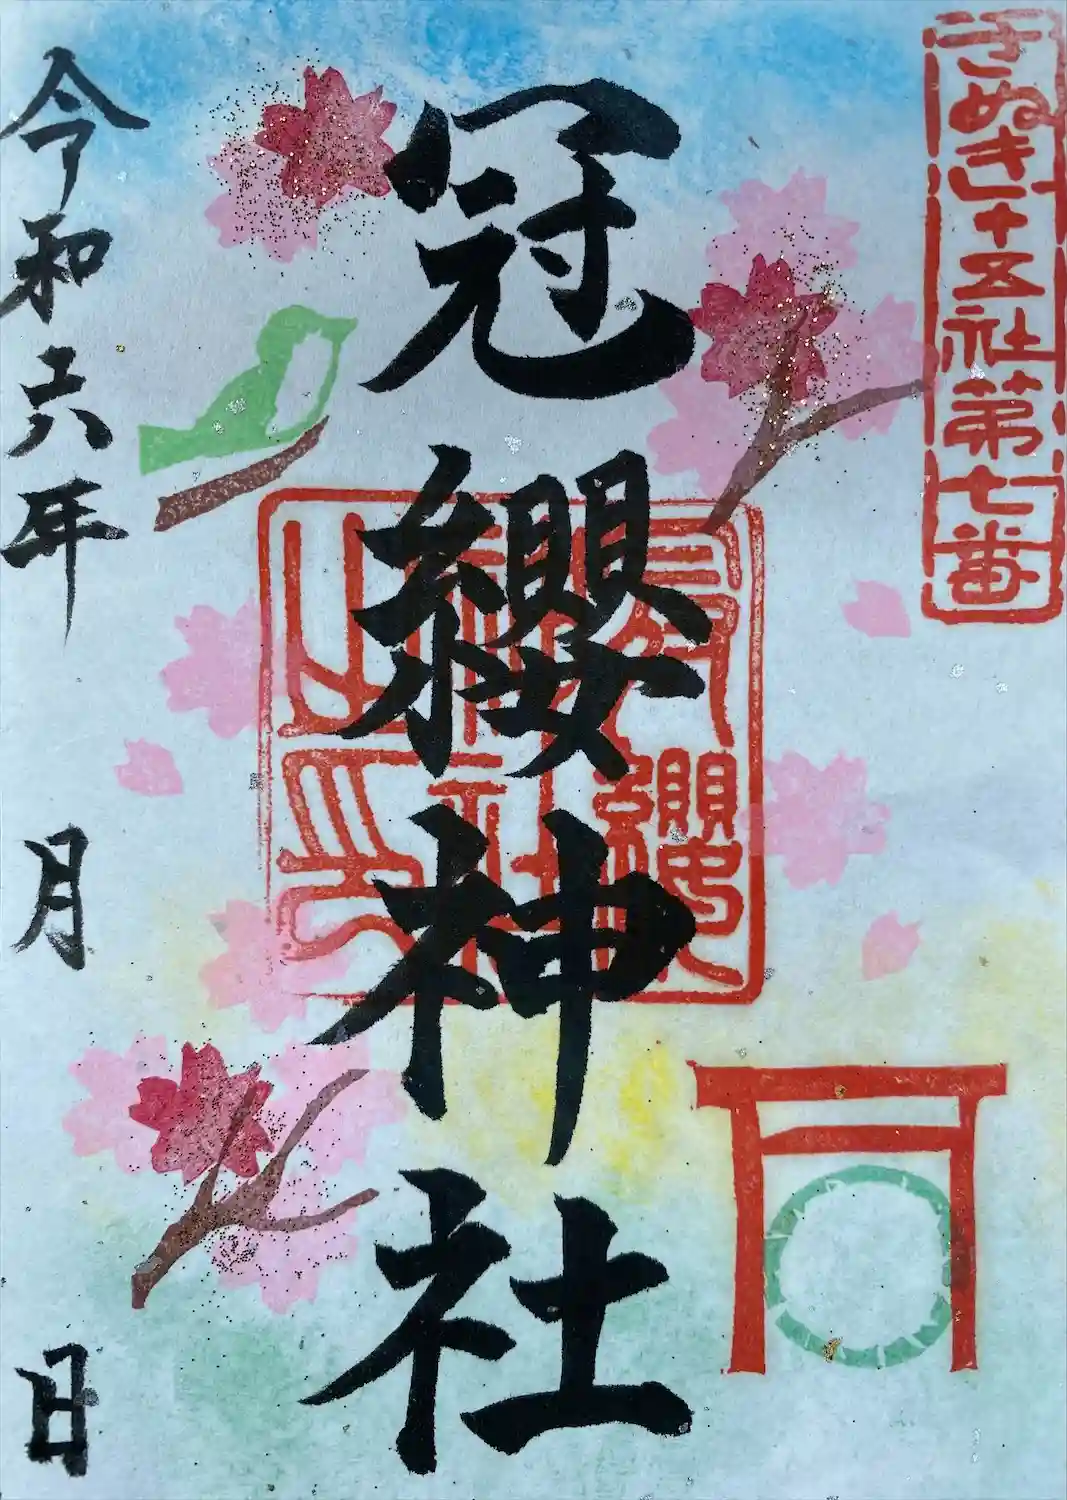 さぬき十五社第七番
冠纓神社
冠纓神社之印
令和六年 月 日